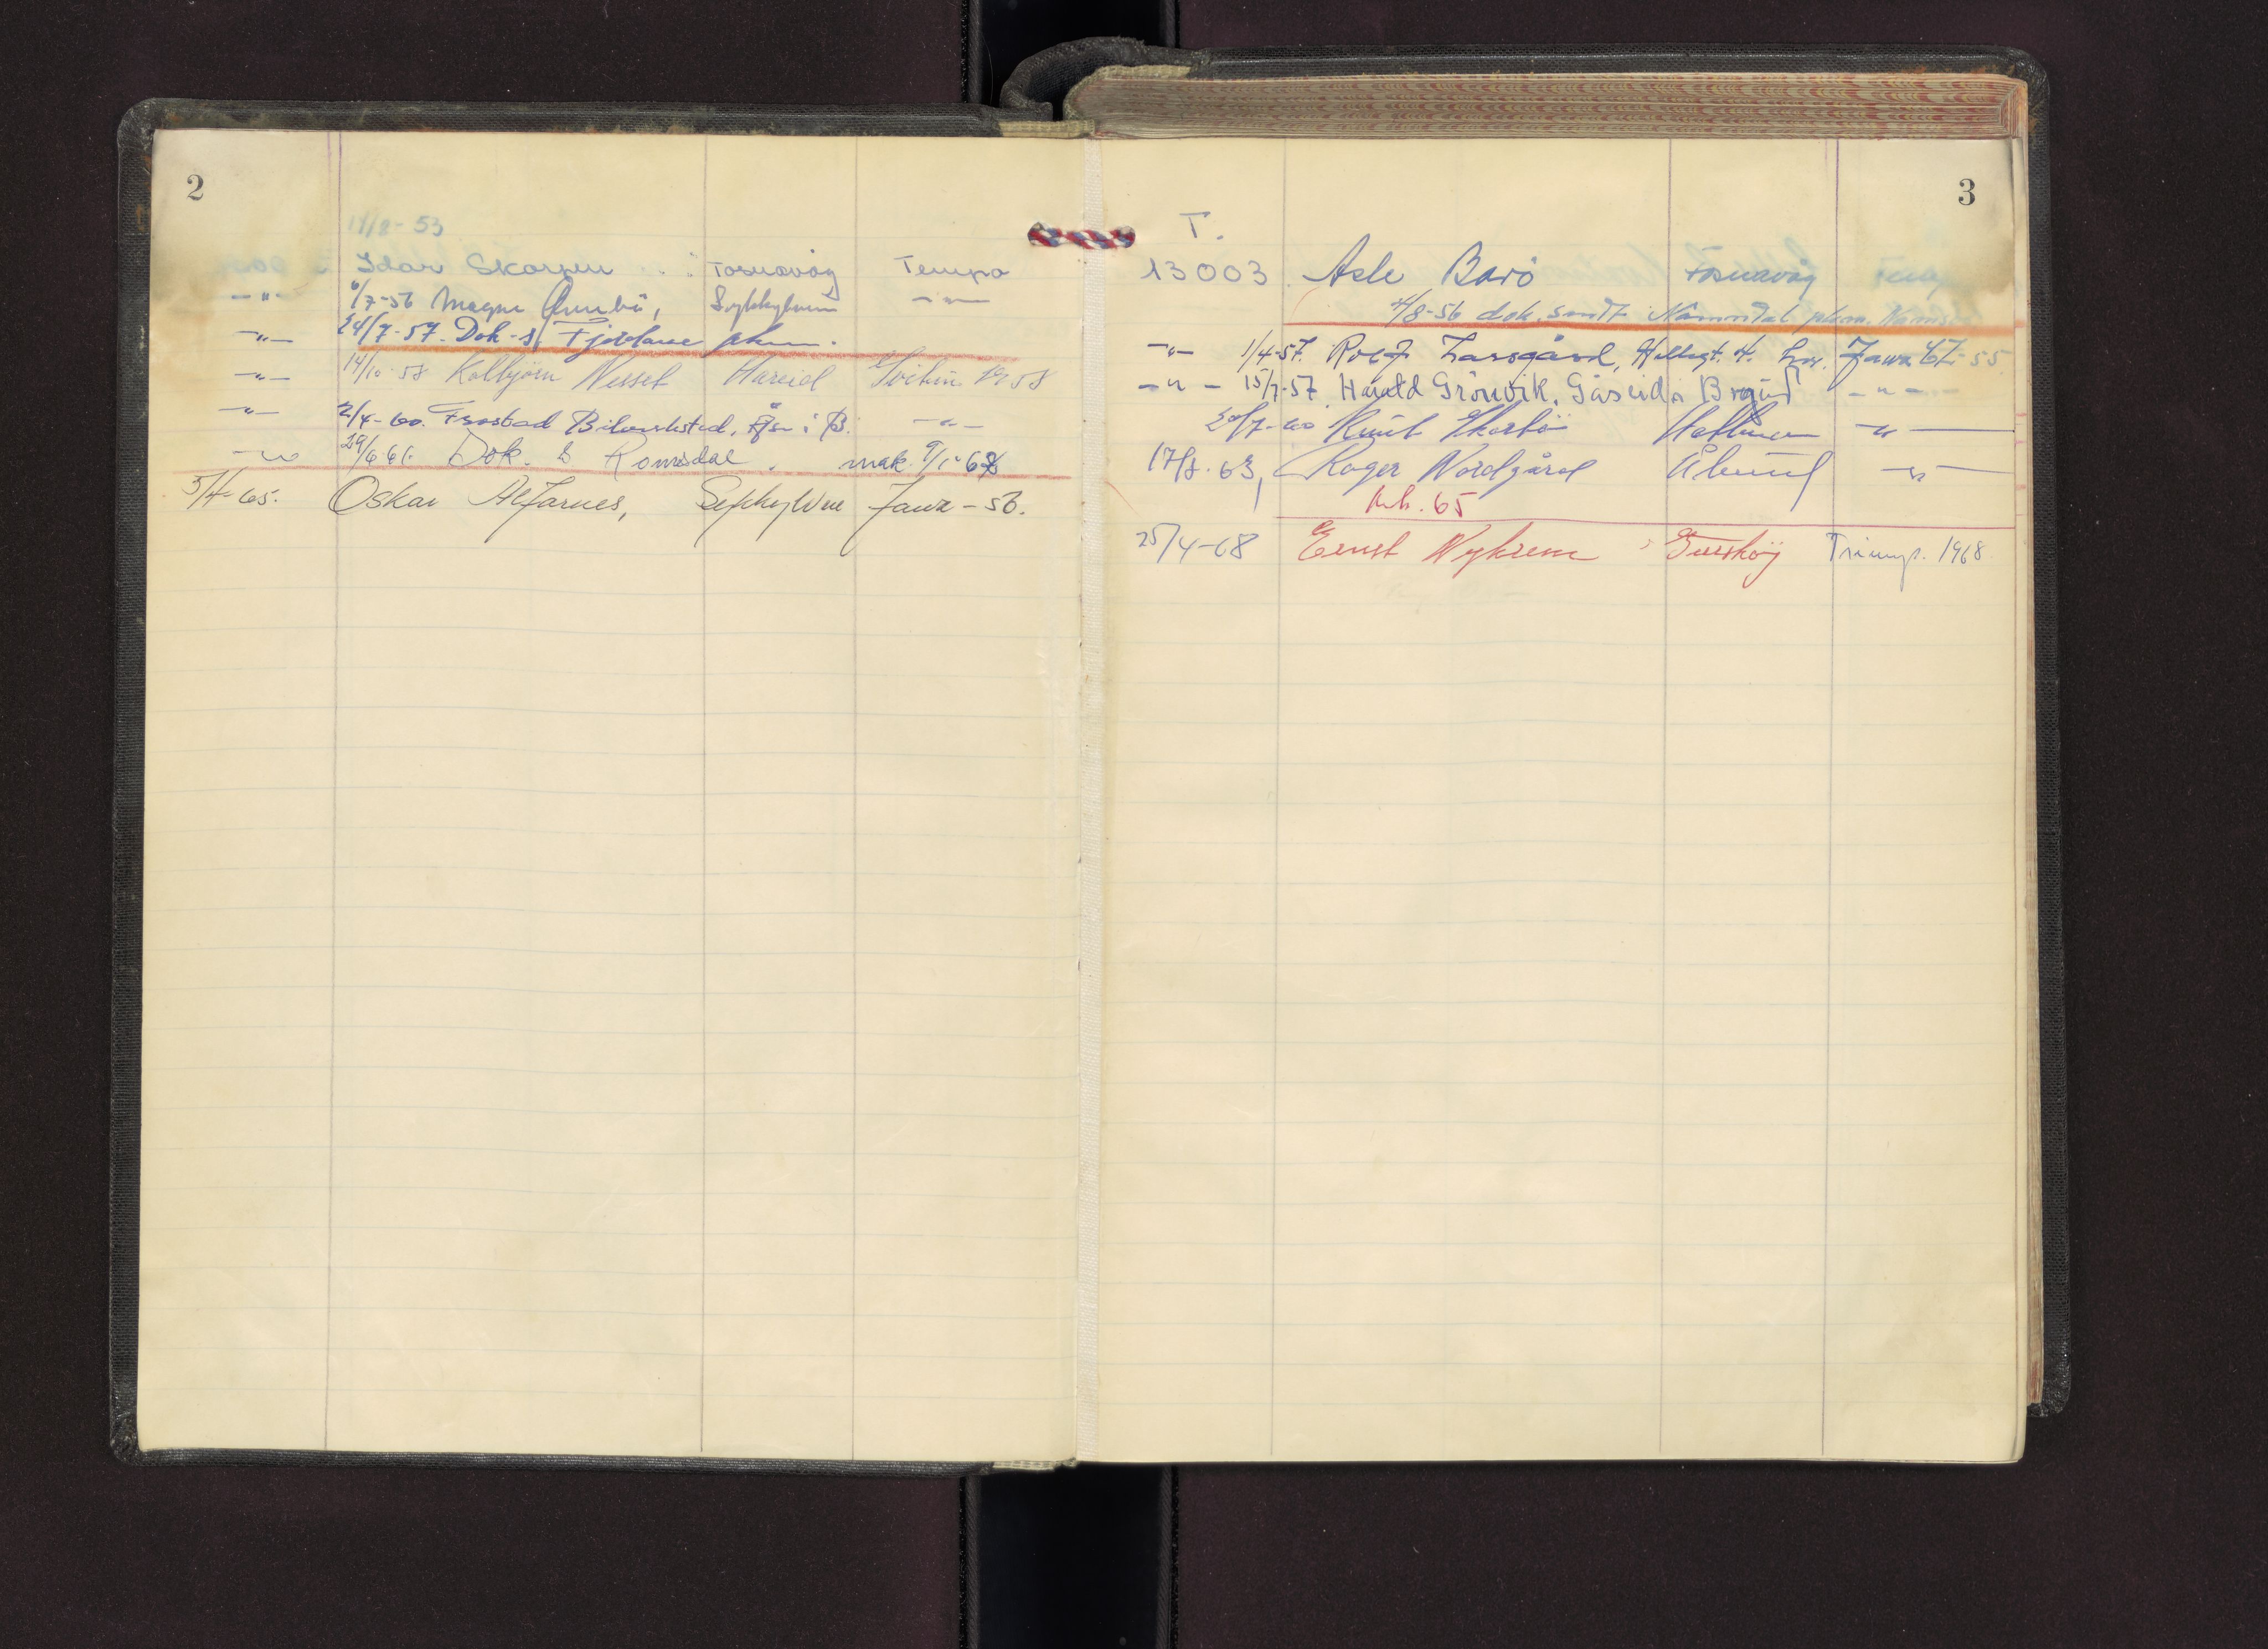 2
11/8-53
Idar Skarpen Fosnavåg Tempo
-"- 6/7-56 Magne Aurebø, Sykkylven -"-
-"- 24/7-57. Dok. s. Fjordane pkm.
-"- 14/10-58 Kolbjørn Nesset Hareid Svithun 1958
-"- 2/4-60. Frostad Bilverksted, i B. -"-
-"- 29/6-61. Dok. t. Romsdal. mak. 9/1-68
5/4-65. Oskar Alfarnes, Sykkylven Jawa - 56.
3
T.
13003 Asle Barö Fosnavåg Temp
4/8-56 dok. sendt Namdal pkm. Namsos
-"- 1/4-57. Rolf Larsgård, Jawa 67-55
-"- 15/7-57 Harald Grönvik, Gåseid i Borgund -"-
20/7-60 Knut Skarbö -"-
17/8.63, Roger Nordgård Ålesund -"-
Avh. 65
25/4-68 Ernst Myhrene Gurskøy Triump. 1968